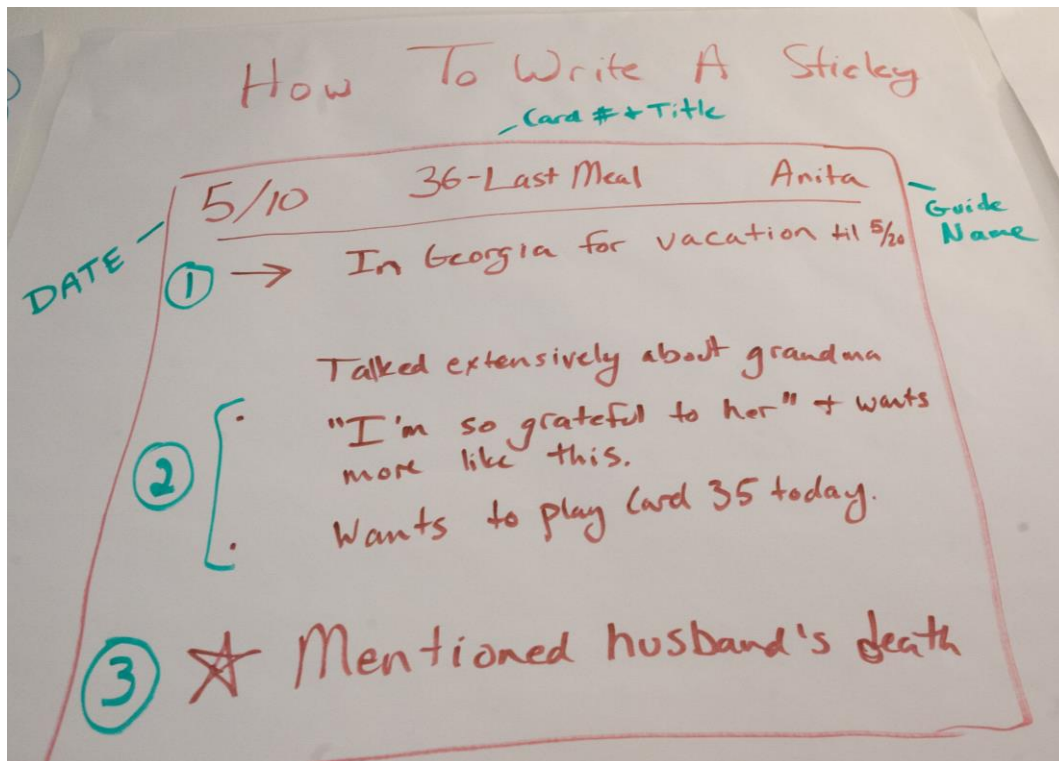 How To Write A Sticky
Card # + Title
5/10 36-Last Meal Anita
Guide
Name
DATE
① → In Georgia for vacation til 5/20
Talked extensively about grandma
② • "I'm so grateful to her" + wants
more like this.
• Wants to play Card 35 today.
③ ☆ Mentioned husband's death